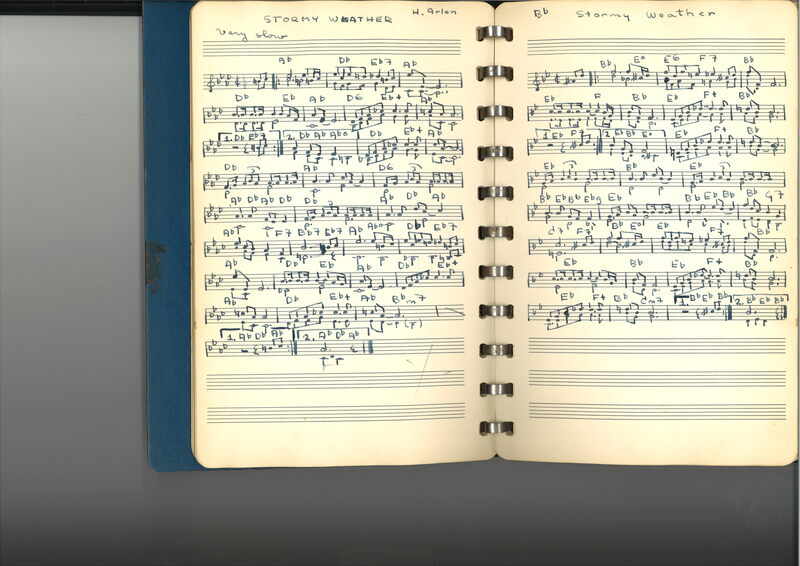 STORMY WEATHER H. Arlen
Very slow
Ab Db Eb7 Ab
Db Eb Ab D6 Eb+ Ab
1. Db Eb7 2. Db Ab Abo Db Eb+ Ab
Db Ab D6
Ab Db Ab Db Db
F7 Bb7 Eb7 Ab
Ab Db Eb Ab Db Eb+
Ab Db Eb+ Ab Bbm7
1. Ab Db Ab 2. Ab Db Ab
Bb Stormy Weather
Bb Eo E6 F7 Bb
Eb F Bb Eb F+ Bb
1 Eb F7 2 Eb Bb Eo Eb F+ Bb
Eb Bb Eb
Bb Eb Bb Eb Bb G7
C7 F7 Bb
Eb F Bb Eb F+ Bb
Eb F+ Bb Cm7 1. Bb Eb Bb 2. Bb Eb Bb